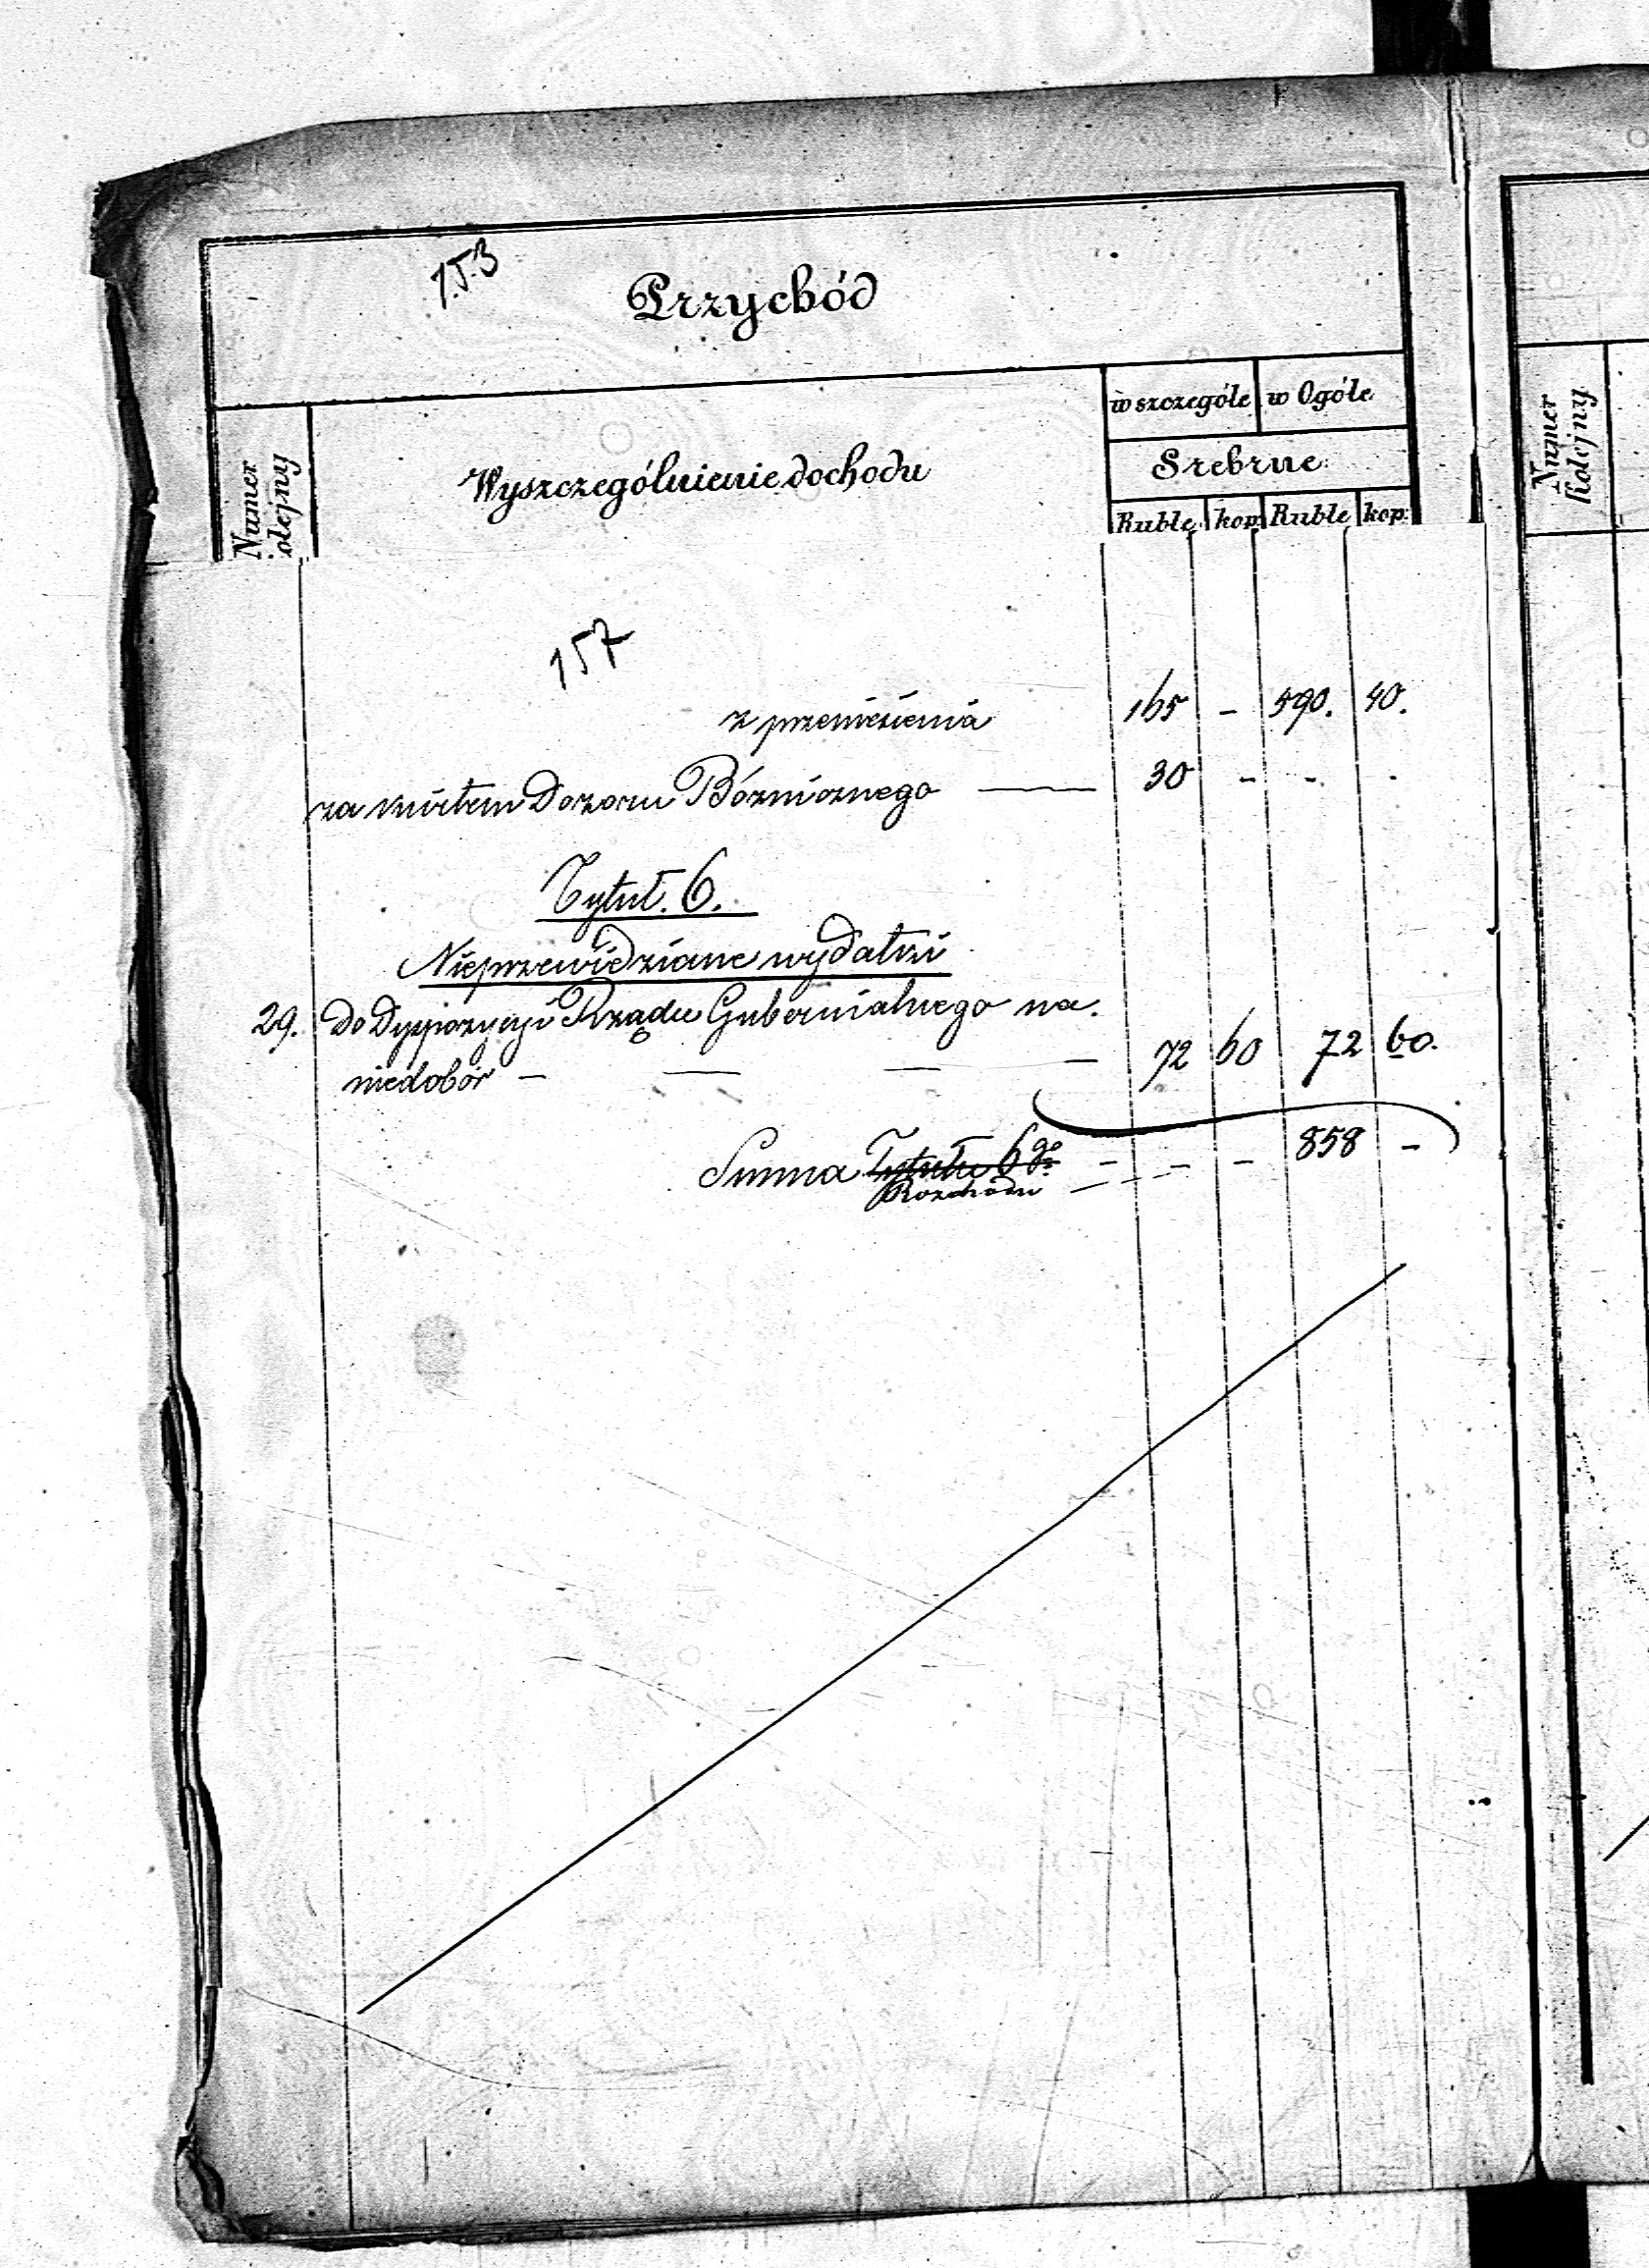 153
Przychód
Numer olejny
Wyszczególnienie dochodu
w szczególe w Ogóle
Srebrne
Ruble kop. Ruble kop.
157
z przeniesienia 165 - 590. 40.
za Dozoru Bóżnicznego — 30 - - .
Tytuł. 6.
Nieprzewidziane wydatki
29. do Dyspozycyi Rządu Gubernialnego na.
niedobór — — — — 72 60 72 60.
Summa Tytułu 6go - - - 858 -
Rozchodu
Numer
Kolejny